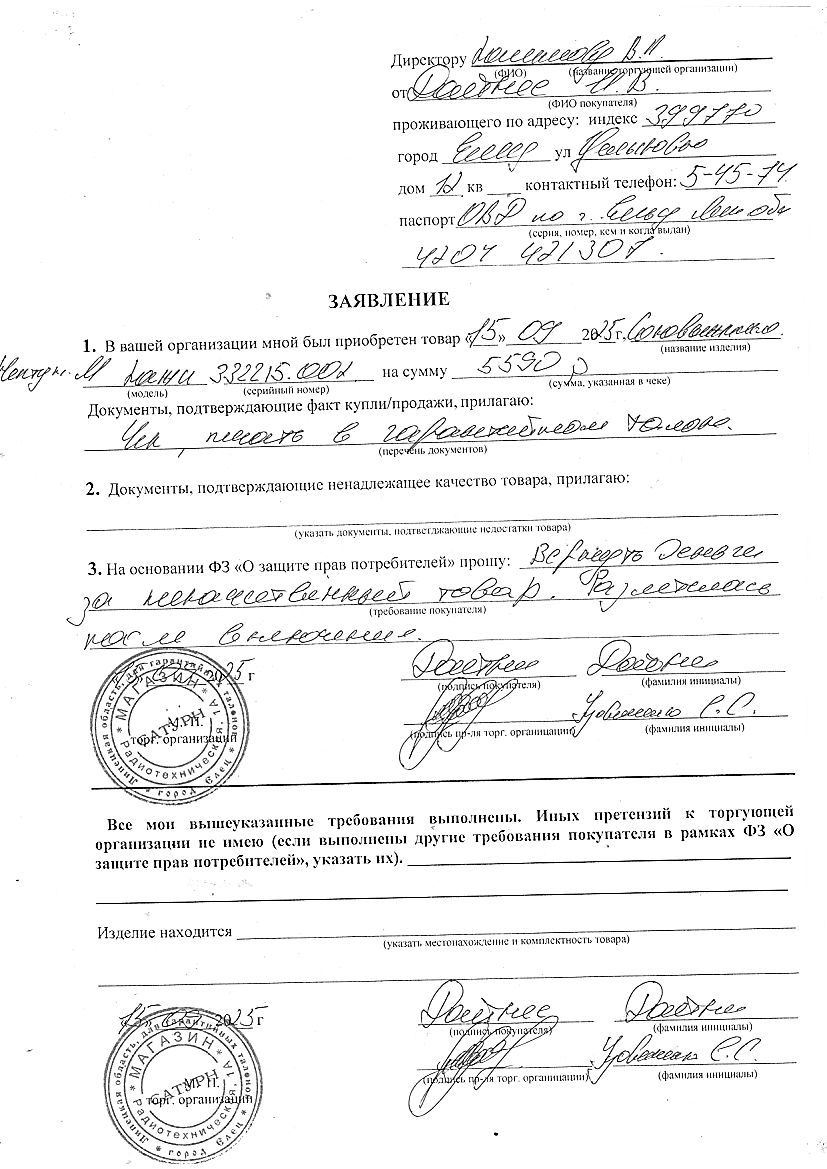 Директору В.П.
(ФИО) (название торгующей организации)
от В.
(ФИО покупателя)
проживающего по адресу: индекс 399770
город Елец ул
дом 12 кв контактный телефон: 5-45-74
паспорт ОВД по г. Ельцу Лип обл
(серия, номер, кем и когда выдан)
4204 421307.
ЗАЯВЛЕНИЕ
1. В вашей организации мной был приобретен товар «15» 09 2025г,
(название изделия)
М 332215.002 на сумму 5590 р
(модель) (серийный номер) (сумма, указанная в чеке)
Документы, подтверждающие факт купли/продажи, прилагаю:
Чек, печать в гарантийном талоне.
(перечень документов)
2. Документы, подтверждающие ненадлежащее качество товара, прилагаю:
(указать документы, подтверждающие недостатки товара)
3. На основании ФЗ «О защите прав потребителей» прошу: Вернуть деньги
за некачественный товар. Разлетелась
(требование покупателя)
после включения.
2025 г
(подпись покупателя) (фамилия инициалы)
С.С.
(подпись пр-ля торг. организации) (фамилия инициалы)
М.П.
торг. организации
Липецкая область, для гарантийных талонов * город Елец *
* МАГАЗИН * Радиотехническая, 1А
САТУРН
Все мои вышеуказанные требования выполнены. Иных претензий к торгующей
организации не имею (если выполнены другие требования покупателя в рамках ФЗ «О
защите прав потребителей», указать их).
Изделие находится
(указать местонахождение и комплектность товара)
15. 2025г
(подпись покупателя) (фамилия инициалы)
С.С.
(подпись пр-ля торг. организации) (фамилия инициалы)
М.П.
торг. организации
Липецкая область, для гарантийных талонов * город Елец *
* МАГАЗИН * Радиотехническая, 1А
САТУРН